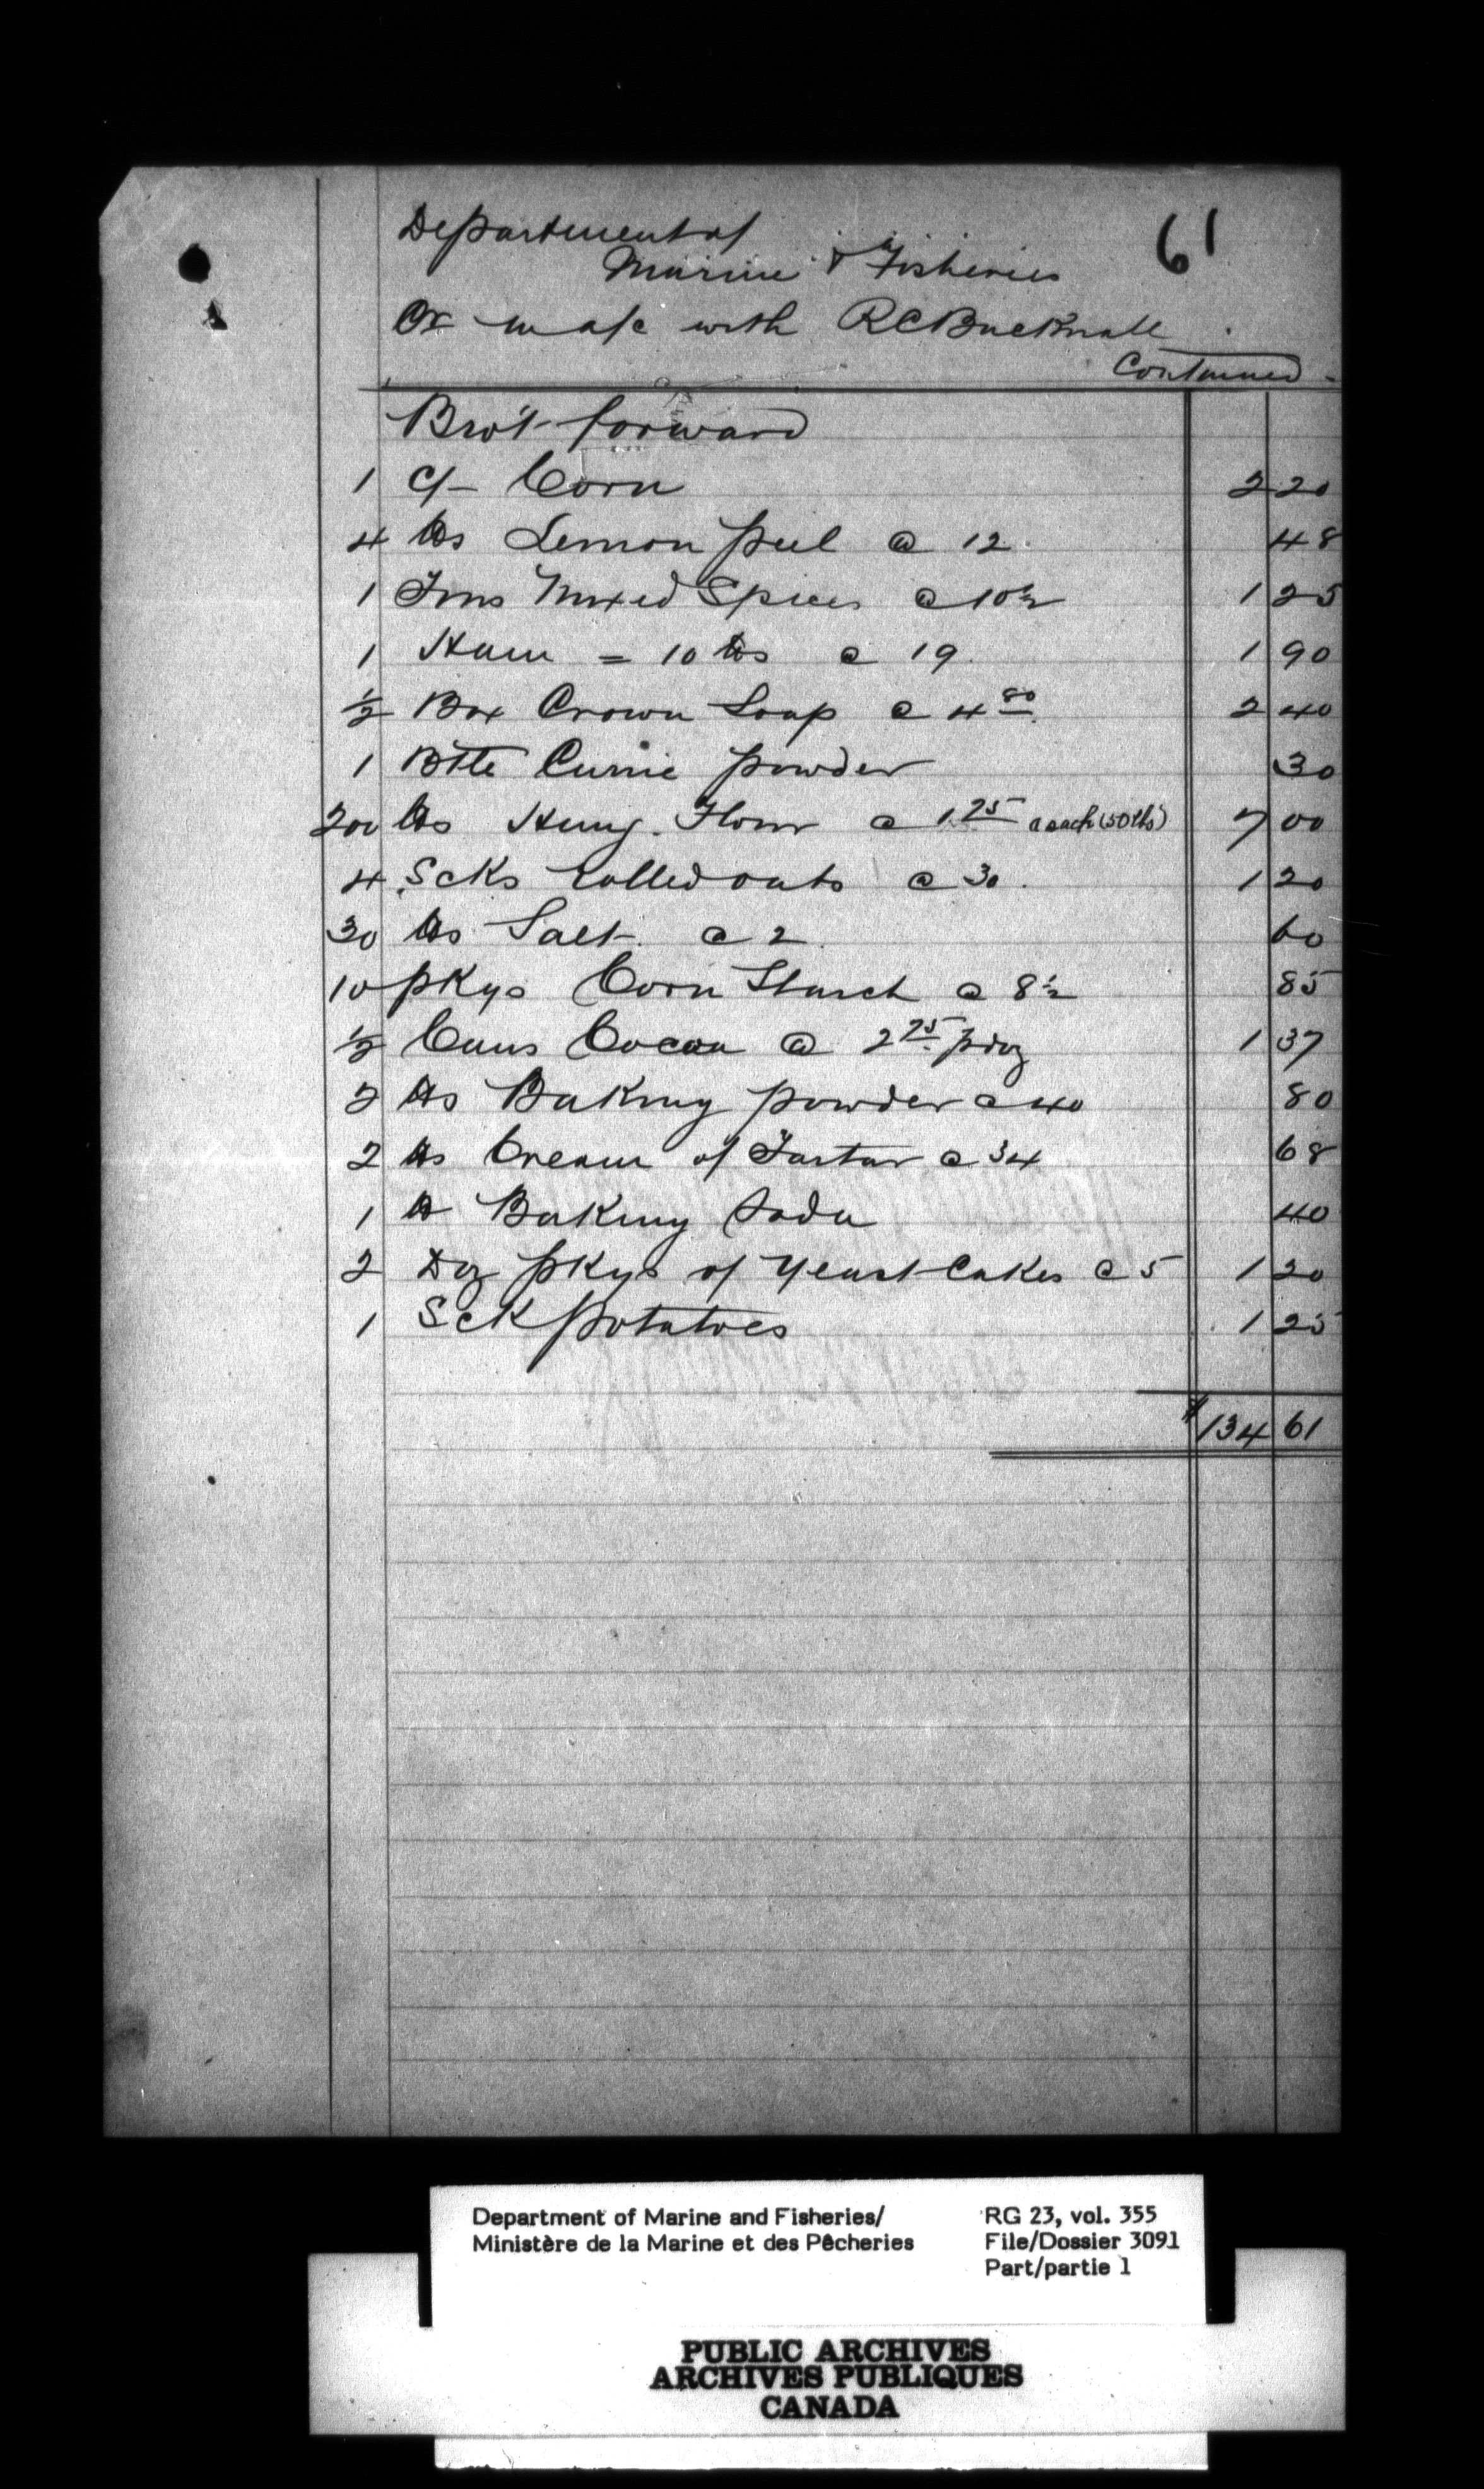 Department of 61
Marine & Fisheries
Dr in a/c with R C Bucknall
Continued
Bro't forward
1 c/- Corn 2 20
4 lbs Lemon peel @ 12 48
1 Tins Mixed Spices @ 10½ 1 25
1 Ham = 10 lbs @ 19 1 90
½ Box Crown Soap @ 4 80 2 40
1 Bttle Currie powder 30
200 lbs Hung. Flour @ 1 75 a sack (50 lbs) 7 00
4 Scks rolled oats @ 30 1 20
30 lbs Salt @ 2 60
10 pkgs Corn Starch @ 8½ 85
½ Cans Cocoa @ 2 75 p doz 1 37
2 lbs Baking powder @ 40 80
2 lbs Cream of Tartar @ 34 68
1 lb Baking Soda 40
2 Doz pkgs of Yeast Cakes @ 5 1 20
1 Sck potatoes 1 25
$134 61
Department of Marine and Fisheries/ RG 23, vol. 355
Ministère de la Marine et des Pêcheries File/Dossier 3091
Part/partie 1
PUBLIC ARCHIVES
ARCHIVES PUBLIQUES
CANADA